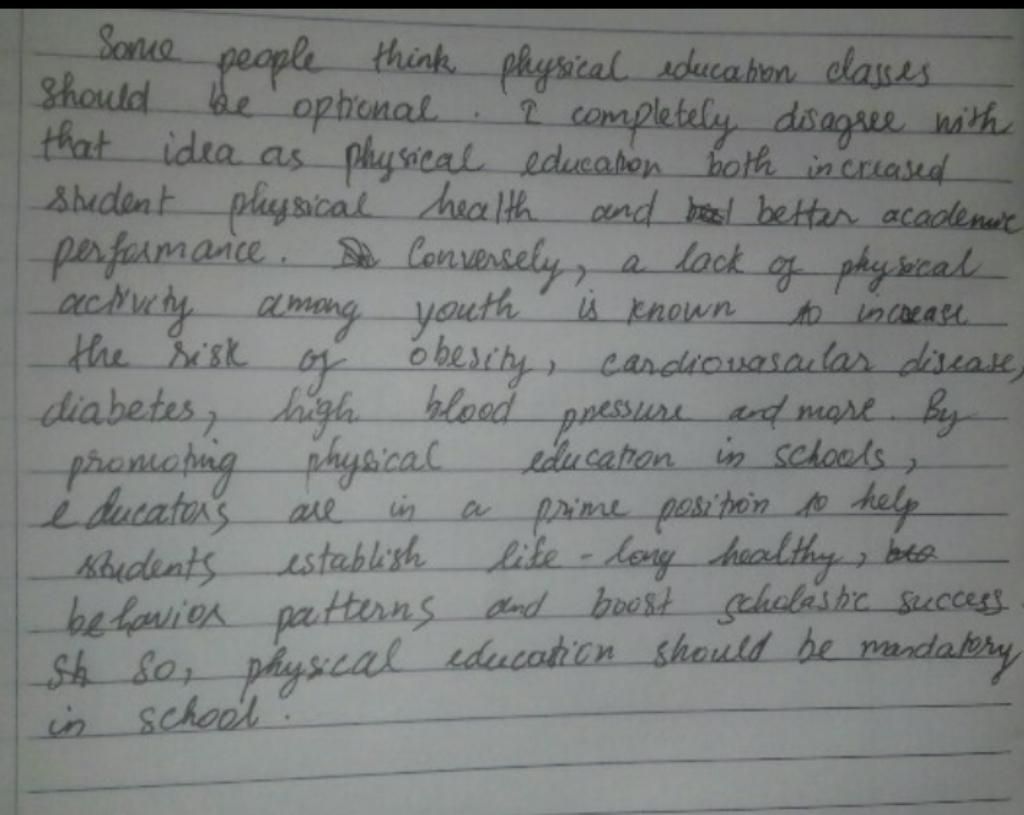 Some people think physical education classes
should be optional. I completely disagree with
that idea as physical education both increased
student physical health and better academic
performance. Conversely, a lack of physical
activity among youth is known to increase
the risk of obesity, cardiovascular disease,
diabetes, high blood pressure and more. By
promoting physical education in schools,
educators are in a prime position to help
students establish life-long healthy,
behavior patterns and boost scholastic success.
So, physical education should be mandatory
in school.